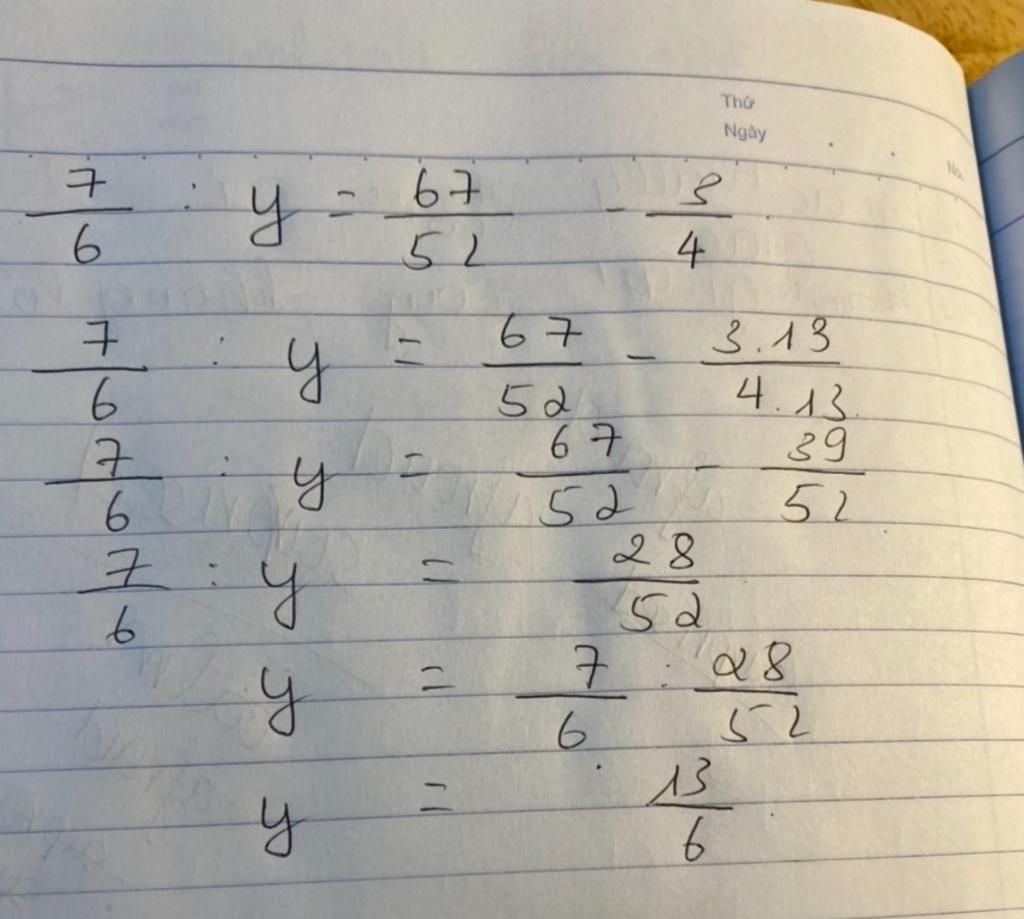 Thứ
Ngày
No.
7/6 : y = 67/52 - 3/4
7/6 : y = 67/52 - 3.13/4.13
7/6 : y = 67/52 - 39/52
7/6 : y = 28/52
y = 7/6 : 28/52
y = 13/6